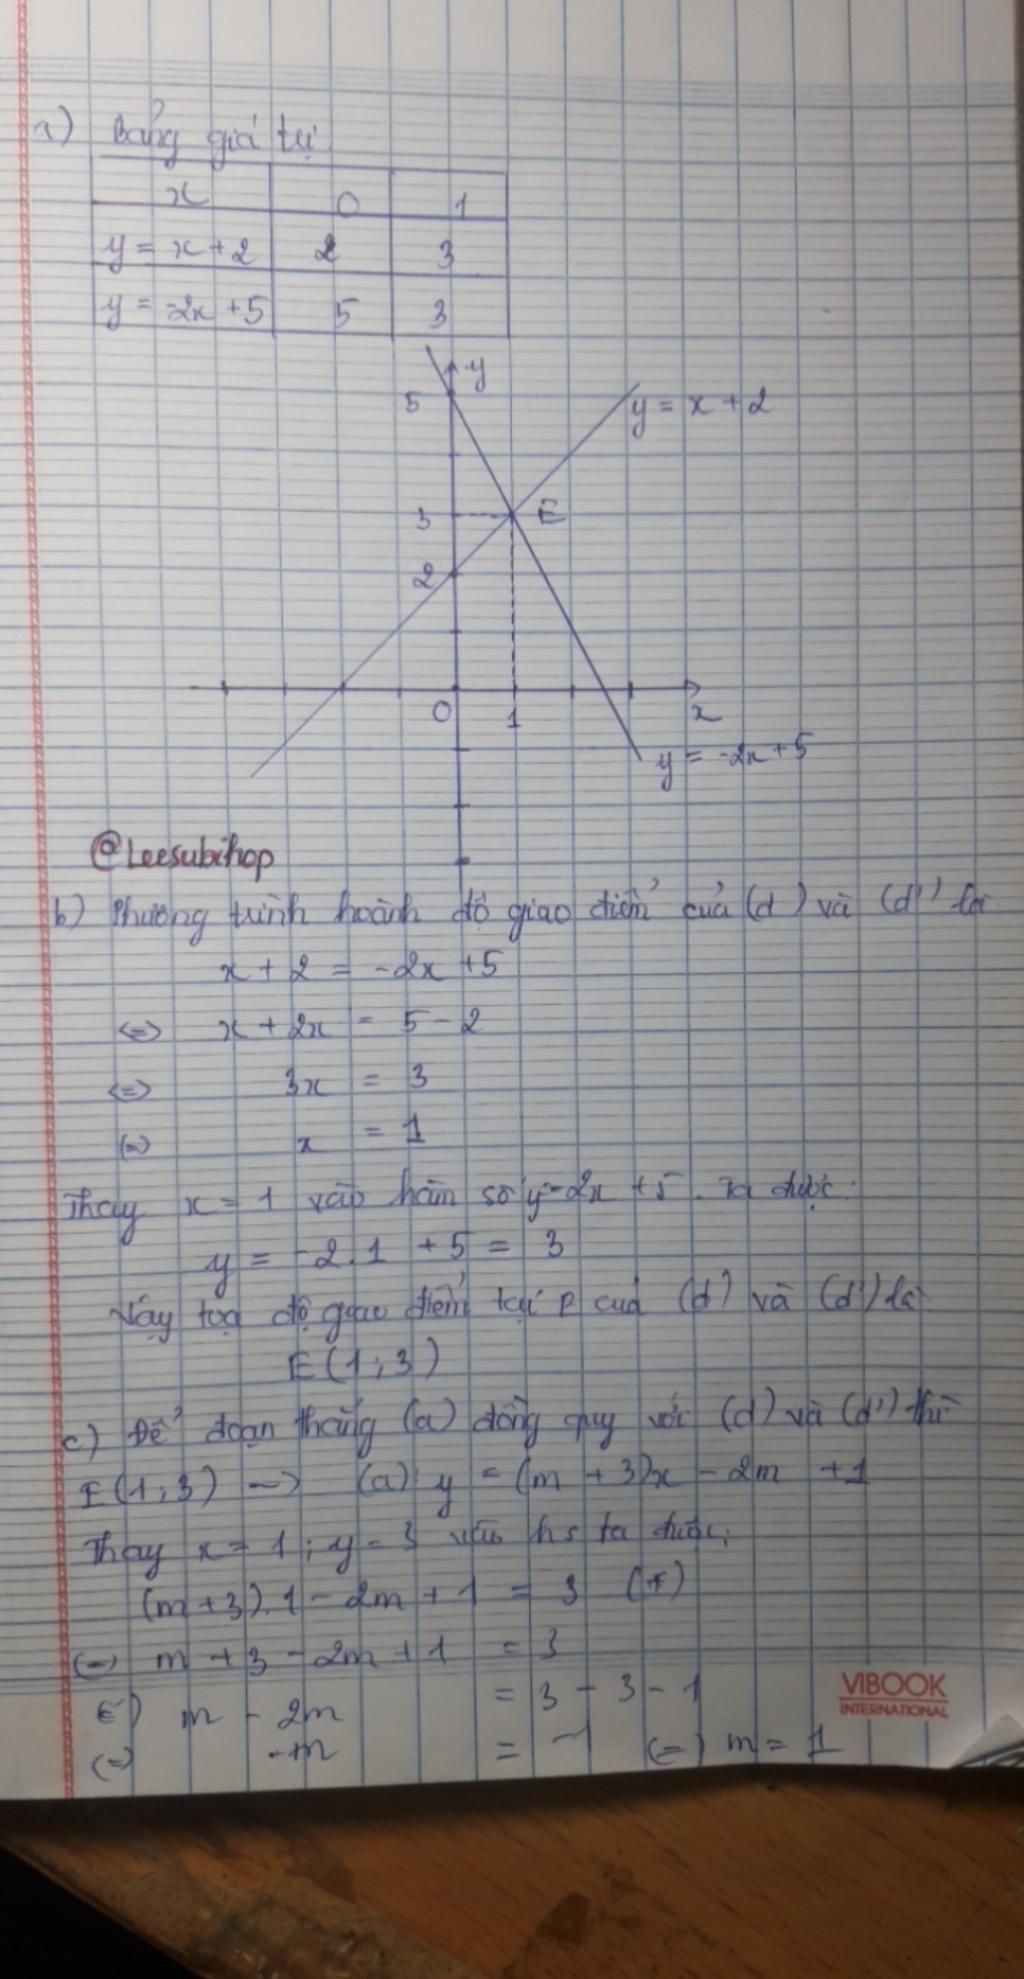 a) Bảng giá trị
x 0 1
y = x + 2 2 3
y = -2x + 5 5 3
y
5
y = x + 2
3 E
2
0 1 x
y = -2x + 5
@Leesubihop
b) Phương trình hoành độ giao điểm của (d) và (d') là
x + 2 = -2x + 5
<=> x + 2x = 5 - 2
<=> 3x = 3
(=) x = 1
Thay x = 1 vào hàm số y = -2x + 5. Ta được:
y = -2.1 + 5 = 3
Vậy toạ độ giao điểm tại E của (d) và (d') là
E (1; 3)
c) Để đoạn thẳng (a) đồng quy với (d) và (d') thì
E (1; 3) -> (a): y = (m + 3)x - 2m + 1
Thay x = 1; y = 3 vào hs ta được:
(m + 3).1 - 2m + 1 = 3 (*)
(=) m + 3 - 2m + 1 = 3
(=) m - 2m = 3 - 3 - 1
(=) -m = -1 (=) m = 1
VIBOOK
INTERNATIONAL